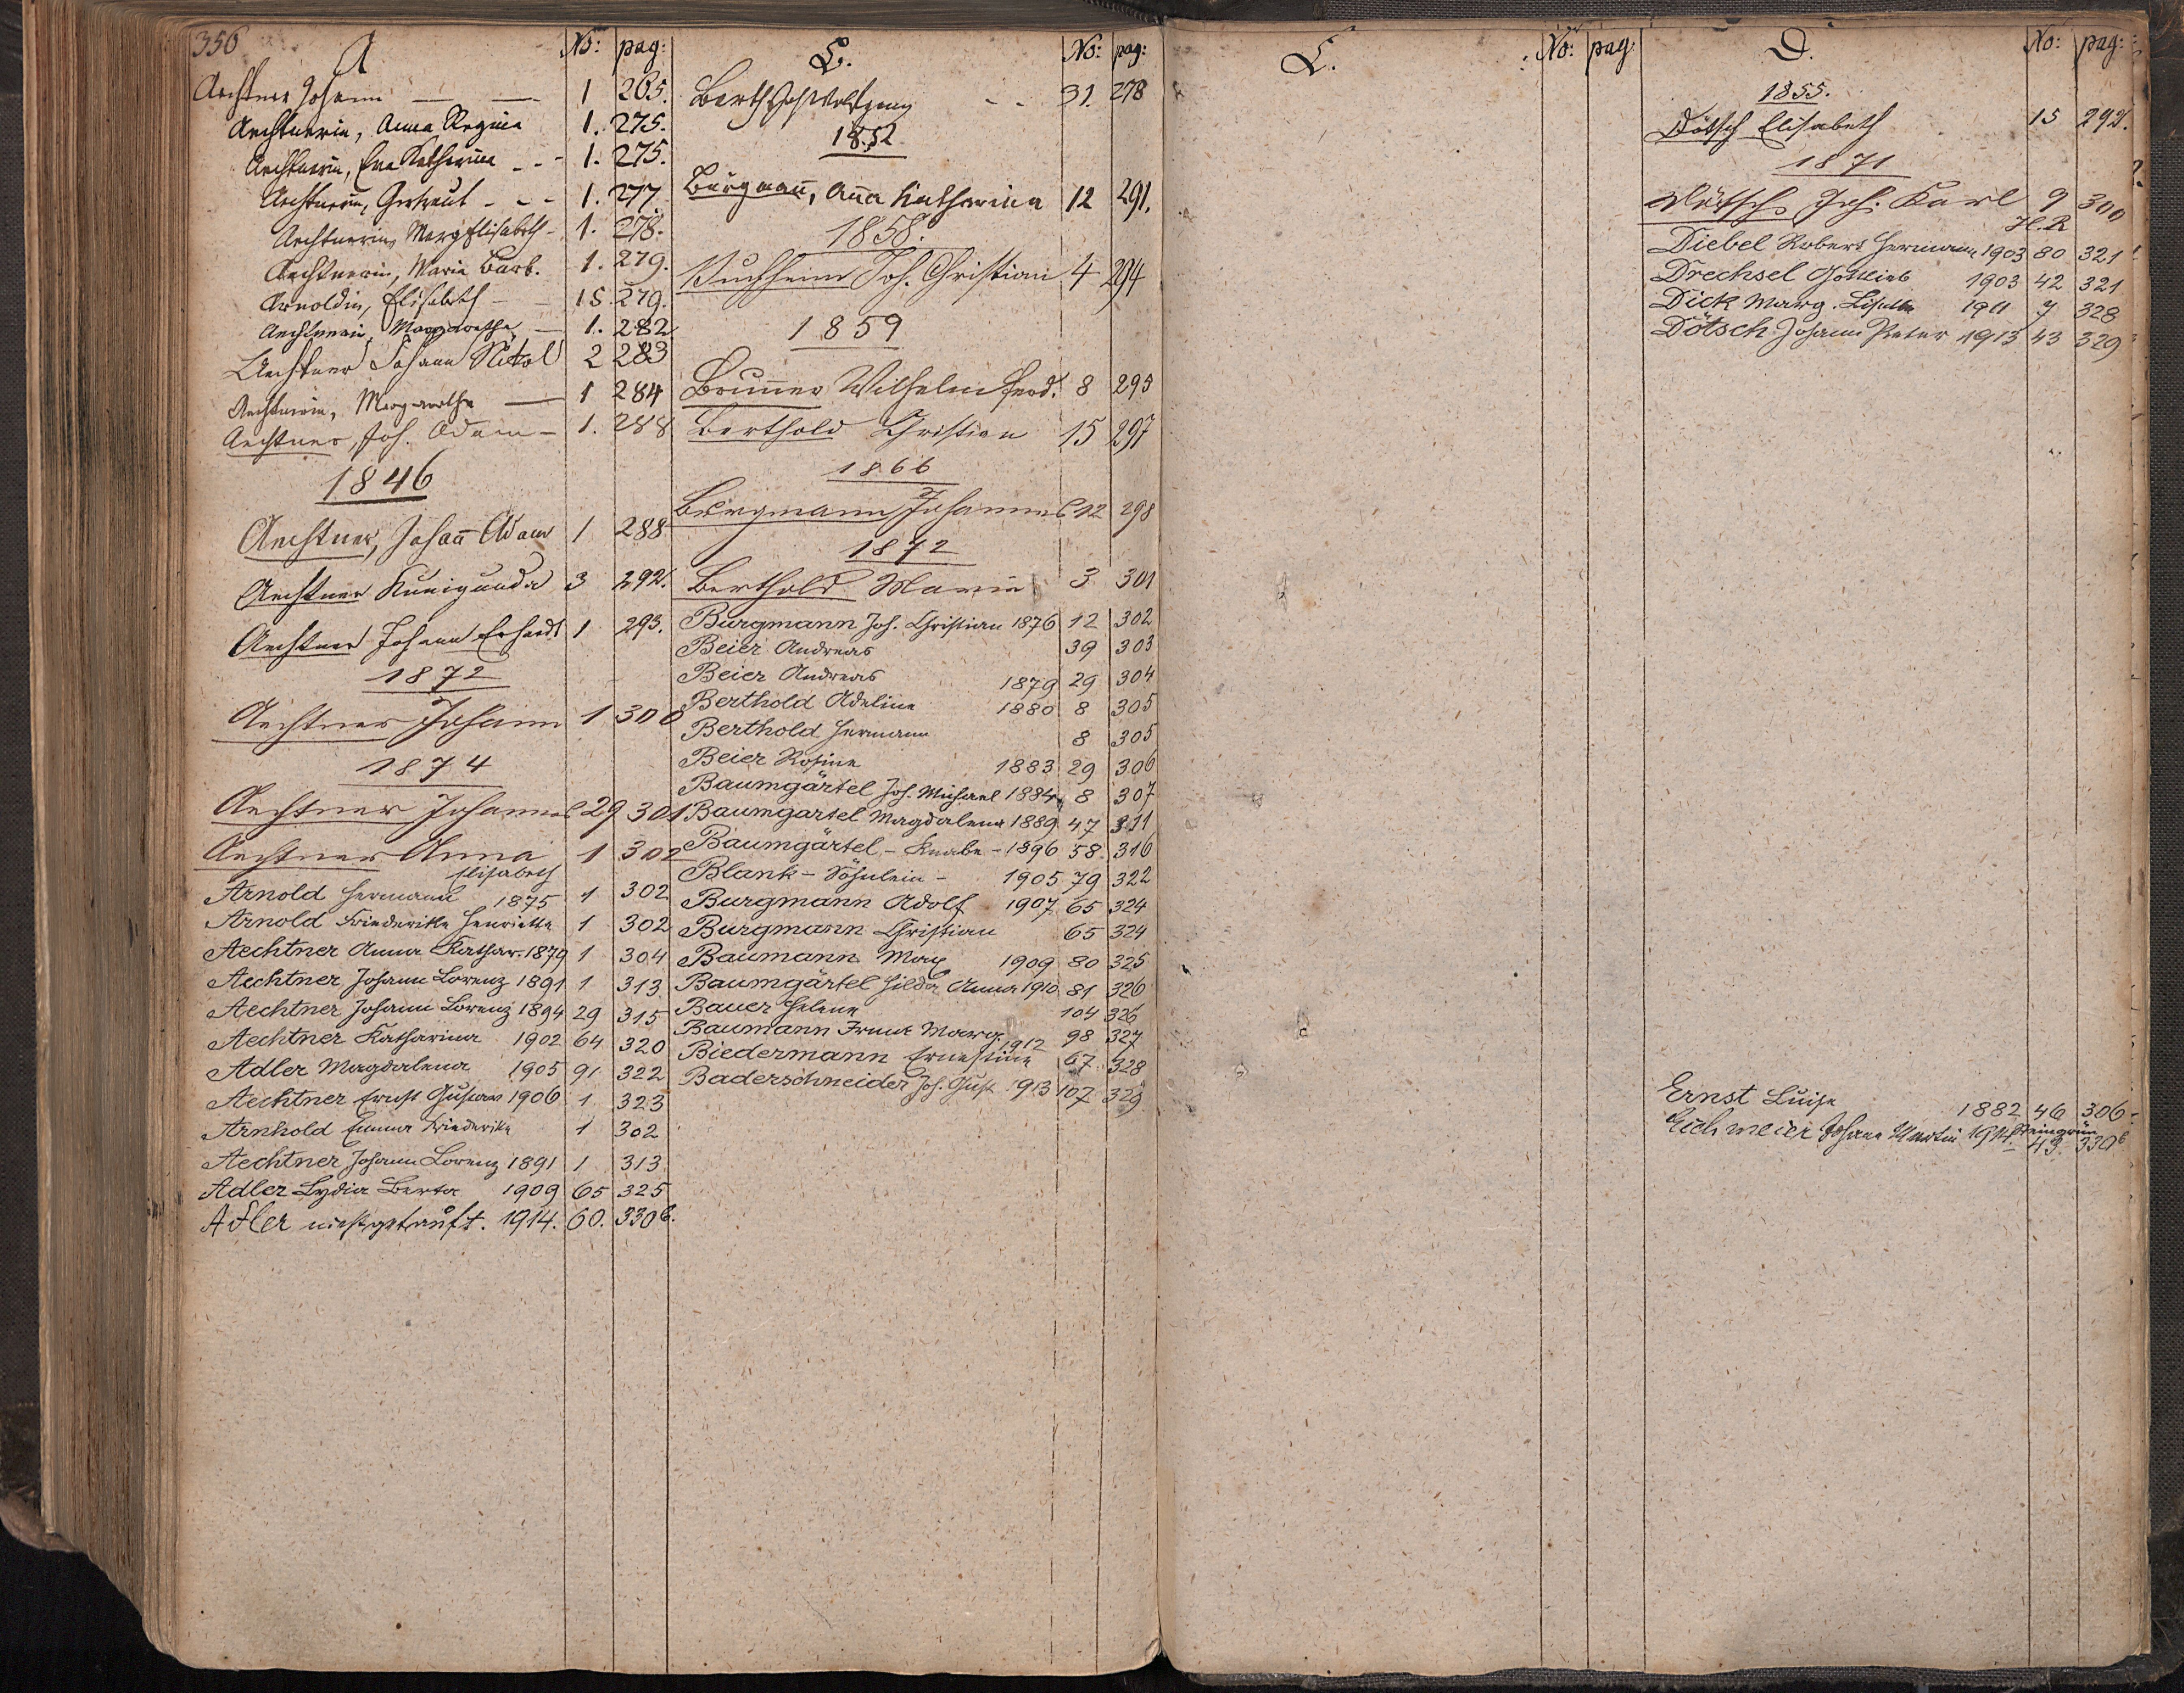 356
A No: pag:
Aechtner Johann — — 1 265.
Aechtnerin, Anna Regina 1. 275.
Aechtnerin, Eva Katharina - - 1. 275.
Aechtnerin, Gertraut - - - 1. 277
Aechtnerin, Marg Elisabeth - 1. 278.
Aechtnerin, Maria Barb. 1. 279.
Arnoldin, Elisabeth - - 15. 279.
Aechtnerin, Margaretha — 1. 282
Aechtner Johann Nikol 2 283
Aechtnerin, Margaretha — 1 284
Aechtner, Joh. Adam - 1. 288
1846
Aechtner, Johan̄ Adam 1 288
Aechtner Kunigunda 3 292.
Aechtner Johann Erhardt 1 293.
1872
Aechtner Johann 1 300
1874
Aechtner Johannes 29 301
Aechtner Anna 1 302
Elisabeth
Arnold Hermann 1875 1 302
Arnold Friederike Henriette 1 302
Aechtner Anna Kathar. 1879 1 304
Aechtner Johann Lorenz 1891 1 313
Aechtner Johann Lorenz 1894 29 315
Aechtner Katharina 1902 64 320
Adler Magdalena 1905 91 322
Aechtner Ernst Gustav 1906 1 323
Arnhold Emma Friederike 1 302
Aechtner Johann Lorenz 1891 1 313
Adler Lydia Berta 1909 65 325
Adler nicht getauft. 1914. 60. 330b.
B. No: pag:
Barth Joh Wolfgang - - 31. 278
1852
Burgman̄, An̄a Katharina 12 291.
1858.
Puchheim Joh. Christian 4 294
1859
Brun̄er Wilhelm Ferd. 8 295
Berthold Christian 15 297
1866
Burgmann Johannes 12 298
1872
Berthold Maria 3 301
Burgmann Joh. Christian 1876 12 302
Beier Andreas 39 303
Beier Andreas 1879 29 304
Berthold Adeline 1880 8 305
Berthold Hermann 8 305
Beier Rosine 1883 29 306
Baumgärtel Joh. Michael 1884 8 307
Baumgartel Magdalena 1889 47 311
Baumgärtel - Knabe - 1896 58. 316
Blank - Söhnlein - 1905 79 322
Burgmann Adolf 1907 65 324
Burgmann Christian 65 324
Baumann Max 1909 80 325
Baumgärtel Hilda Anna 1910 81 326
Bauer Helene 104 326
Baumann Marg. 98 327
Biedermann Ernestine 1912 67 328
Baderschneider Joh. Gust 1913 107 329
C. No: pag
D. No: pag:
1855.
Dötsch Elisabeth 15 292.
1871
Dötsch Joh. Karl 9 300
H.R
Diebel Robert Hermann 1903 80 321
Drechsel Gottlieb 1903 42 321
Dick Marg. 1911 7 328
Dötsch Johann Peter 1913 43 329
Ernst Luise 1882 46 306
Eichmeier Johann Martin 1914 43. 330b